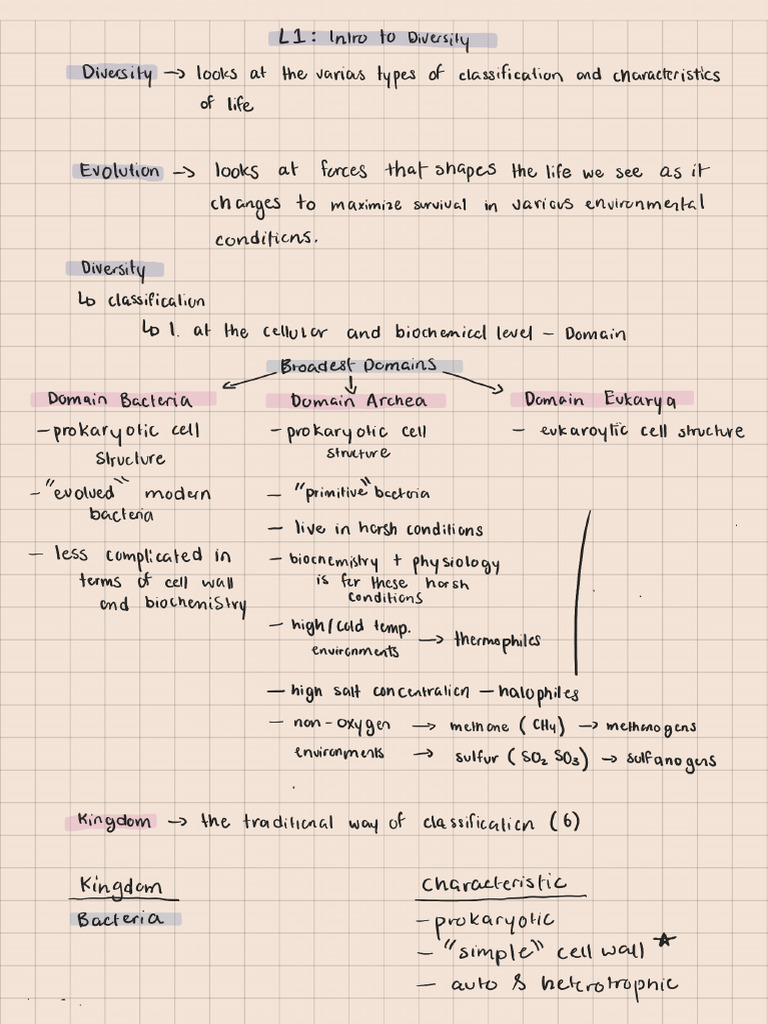 L1: Intro to Diversity
Diversity → looks at the various types of classification and characteristics
of life
Evolution → looks at forces that shapes the life we see as it
changes to maximize survival in various environmental
conditions.
Diversity
↳ classification
↳ 1. at the cellular and biochemical level - Domain
Broadest Domains
Domain Bacteria
- prokaryotic cell
structure
- "evolved" modern
bacteria
- less complicated in
terms of cell wall
and biochemistry
Domain Archea
- prokaryotic cell
structure
- "primitive" bacteria
- live in harsh conditions
- biochemistry + physiology
is for these harsh
conditions
- high/cold temp. → thermophiles
environments
- high salt concentration - halophiles
- non-oxygen → methane (CH4) → methanogens
environments → sulfur (SO2 SO3) → sulfanogens
Domain Eukarya
- eukaroytic cell structure
Kingdom → the traditional way of classification (6)
Kingdom
Bacteria
Characteristic
- prokaryotic
- "simple" cell wall ★
- auto & heterotrophic